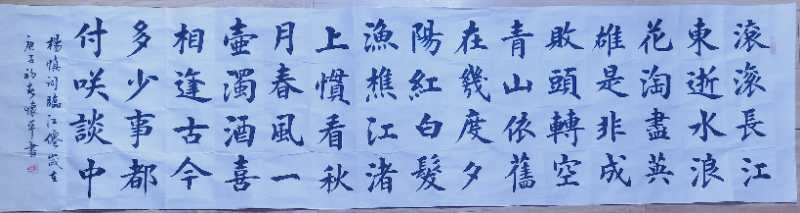 滾滾長江
東逝水浪
花淘盡英
雄是非成
敗頭轉空
青山依舊
在幾度夕
陽紅白髮
漁樵江渚
上慣看秋
月春風一
壺濁酒喜
相逢古今
多少事都
付咲談中
楊慎詞臨江僊歲在
庚子初春懷書